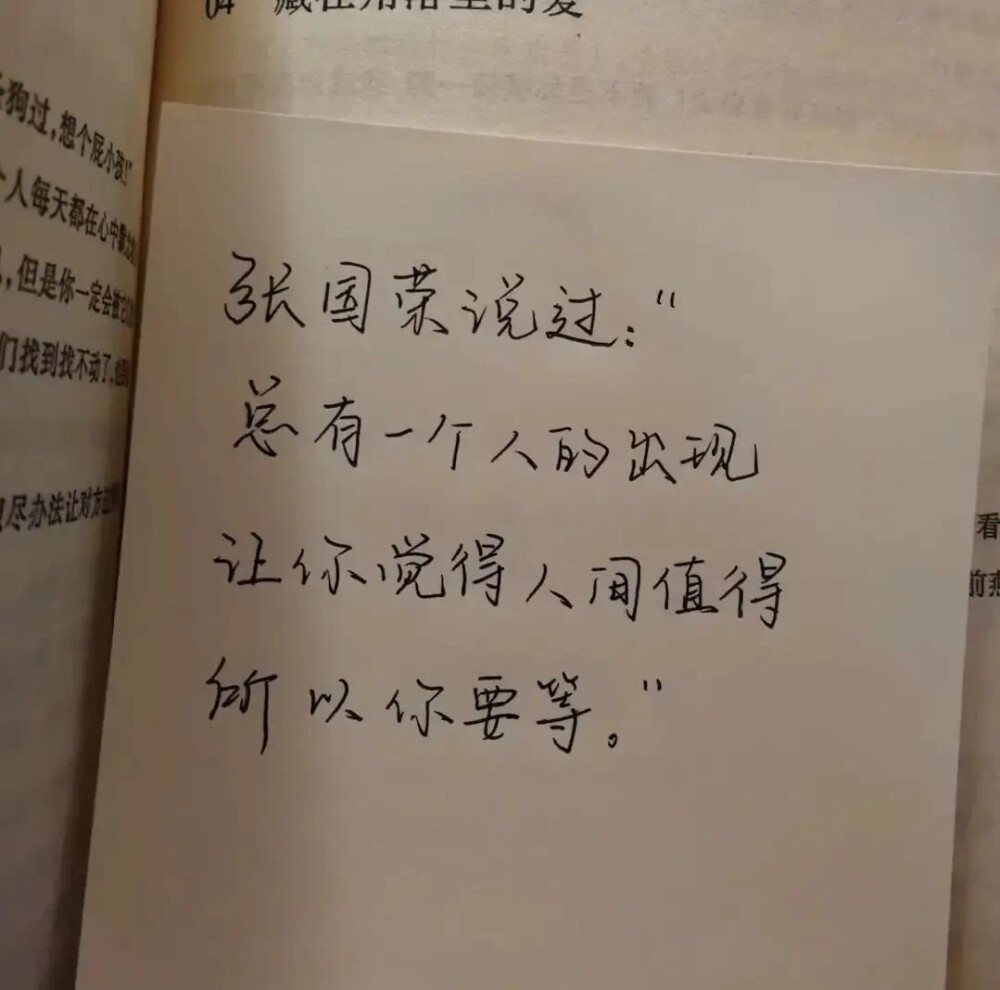 04 藏在角落里的爱
狗过，想个屁小孩！”
个人每天都在心中
，但是你一定会被它
们找到找不动了，
尽办法让对方
张国荣说过：“
总有一个人的出现
让你觉得人间值得
所以你要等。”
看
前